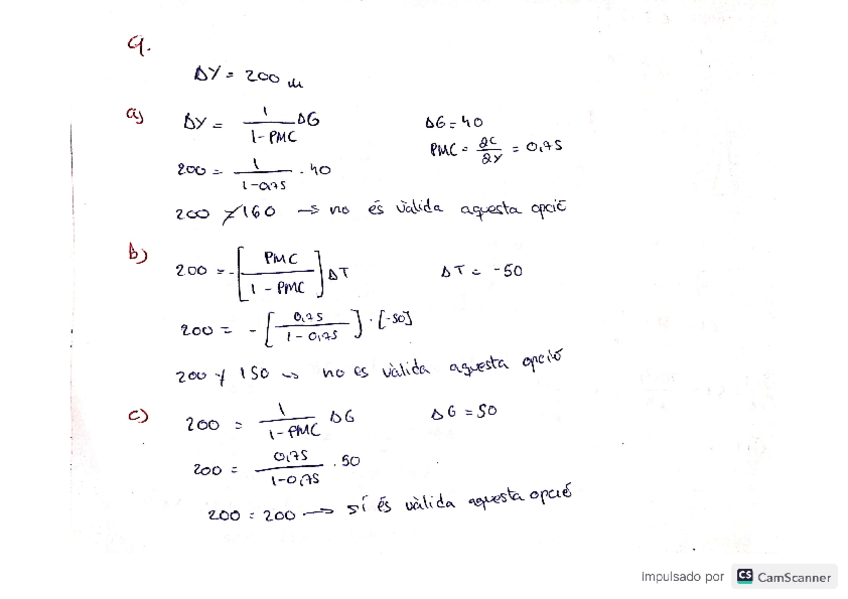 9.
ΔY = 200 m
a) ΔY = 1/(1-PMC) ΔG ΔG = 40
PMC = ∂C/∂Y = 0,75
200 = 1/(1-0,75) · 40
200 ≠ 160 → no és vàlida aquesta opció
b) 200 = -[PMC/(1-PMC)] ΔT ΔT = -50
200 = -[0,75/(1-0,75)] · [-50]
200 ≠ 150 → no es vàlida aquesta opció
c) 200 = 1/(1-PMC) ΔG ΔG = 50
200 = 0,75/(1-0,75) · 50
200 = 200 → sí és vàlida aquesta opció
Impulsado por CS CamScanner